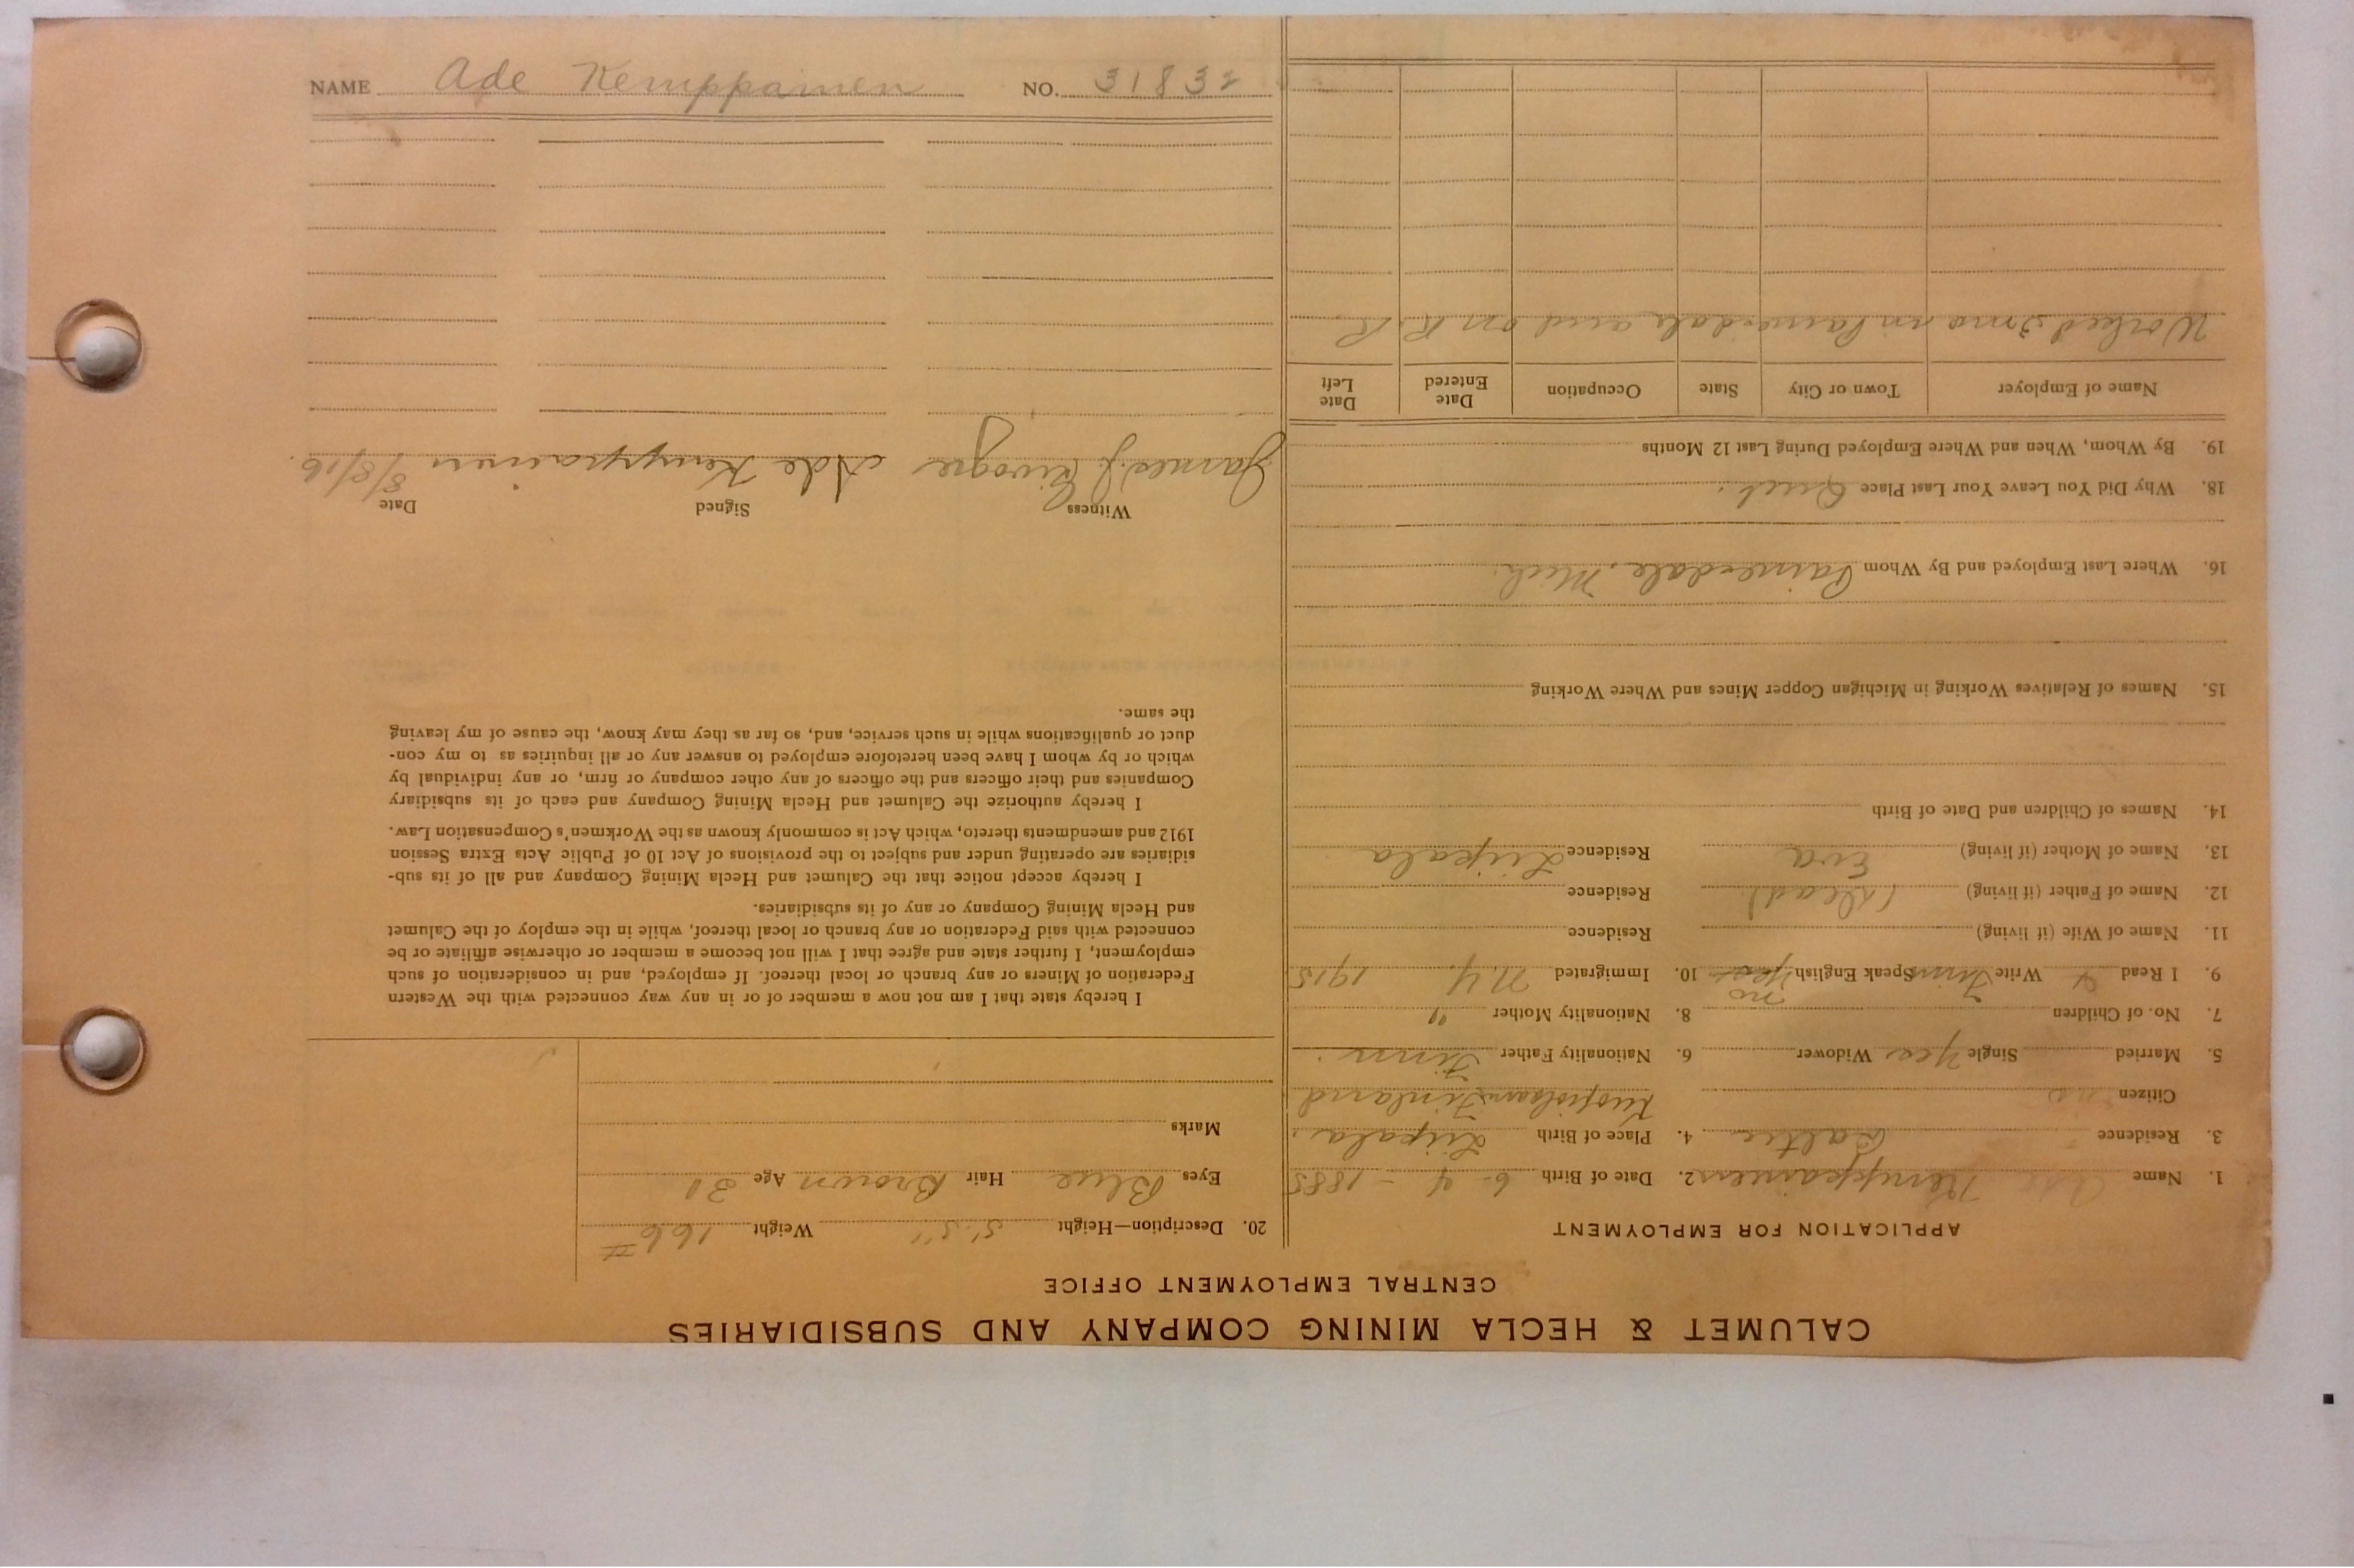 NAME Ade Kemppainen NO. 31832
CALUMET & HECLA MINING COMPANY AND SUBSIDIARIES
CENTRAL EMPLOYMENT OFFICE
APPLICATION FOR EMPLOYMENT
1. Name Ade Kemppainen 2. Date of Birth 6 - 4 - 1885
3. Residence Baltic 4. Place of Birth Liipala,
Citizen no Finland
5. Married Single Yes Widower 6. Nationality Father Finn.
7. No. of Children 8. Nationality Mother "
9. I Read & Write Finn Speak English no 10. Immigrated N.Y. 1915
11. Name of Wife (if living) Residence
12. Name of Father (if living) (dead) Residence
13. Name of Mother (if living) Eva Residence Liipala
14. Names of Children and Date of Birth
15. Names of Relatives Working in Michigan Copper Mines and Where Working
16. Where Last Employed and By Whom Painesdale, Mich.
18. Why Did You Leave Your Last Place Quit.
19. By Whom, When and Where Employed During Last 12 Months
Name of Employer Town or City State Occupation Date Entered Date Left
Worked 3 mo in Painesdale and on R.R.
20. Description—Height 5' 5" Weight 166 #
Eyes Blue Hair Brown Age 31
Marks
I hereby state that I am not now a member of or in any way connected with the Western
Federation of Miners or any branch or local thereof. If employed, and in consideration of such
employment, I further state and agree that I will not become a member or otherwise affiliate or be
connected with said Federation or any branch or local thereof, while in the employ of the Calumet
and Hecla Mining Company or any of its subsidiaries.
I hereby accept notice that the Calumet and Hecla Mining Company and all of its sub-
sidiaries are operating under and subject to the provisions of Act 10 of Public Acts Extra Session
1912 and amendments thereto, which Act is commonly known as the Workmen's Compensation Law.
I hereby authorize the Calumet and Hecla Mining Company and each of its subsidiary
Companies and their officers and the officers of any other company or firm, or any individual by
which or by whom I have been heretofore employed to answer any or all inquiries as to my con-
duct or qualifications while in such service, and, so far as they may know, the cause of my leaving
the same.
Witness Signed Date
James J. Ade Kemppainen 8/8/16.